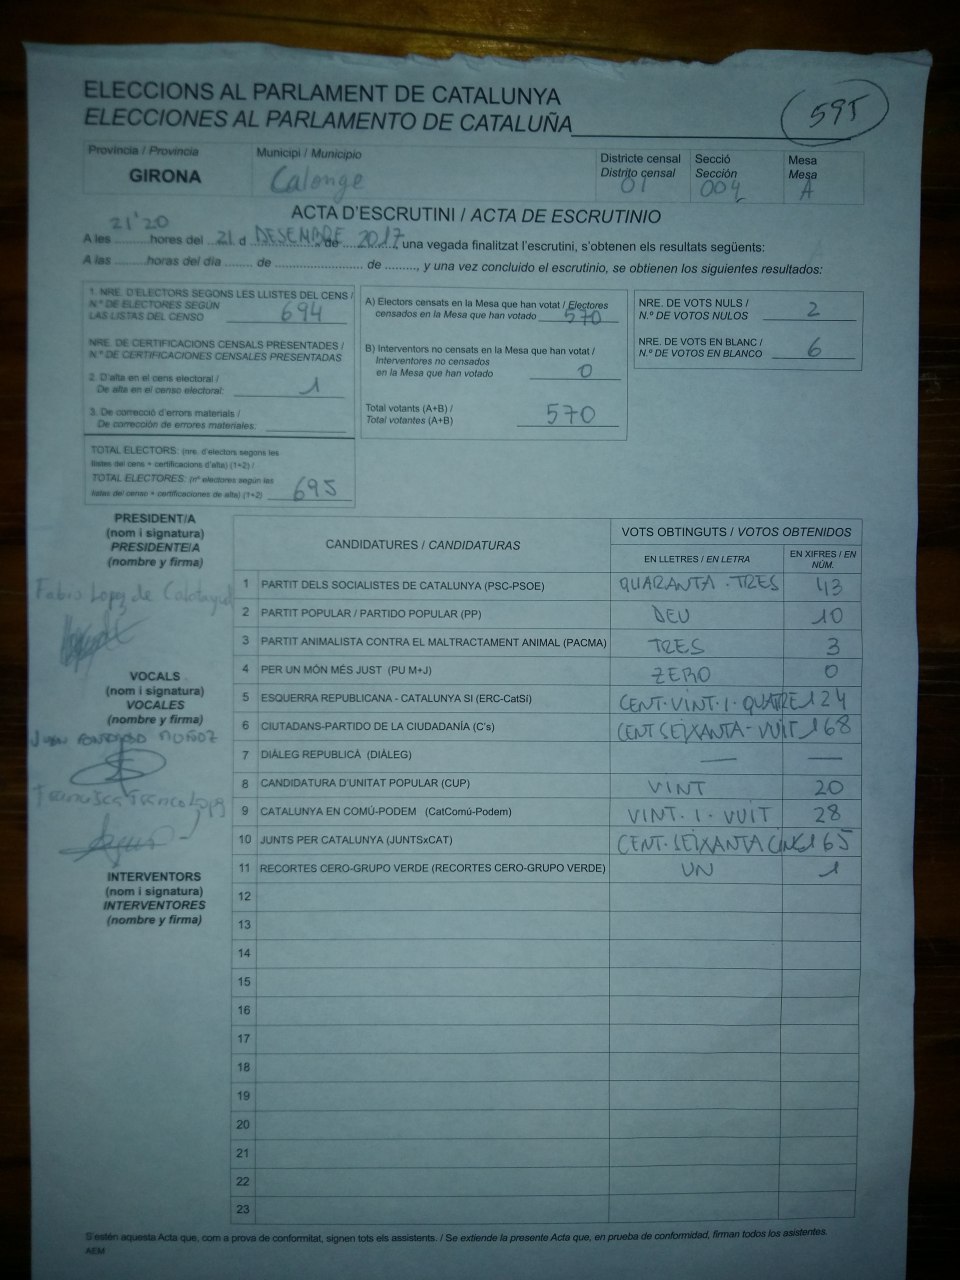 ELECCIONS AL PARLAMENT DE CATALUNYA
ELECCIONES AL PARLAMENTO DE CATALUÑA
595
Província / Provincia
GIRONA
Municipi / Municipio
Calonge
Districte censal
Distrito censal
01
Secció
Sección
004
Mesa
Mesa
A
ACTA D'ESCRUTINI / ACTA DE ESCRUTINIO
A les 21'20 hores del 21 d DESEMBRE de 2017, una vegada finalitzat l'escrutini, s'obtenen els resultats següents:
A las ......... horas del día ........ de ........................ de ........, y una vez concluido el escrutinio, se obtienen los siguientes resultados:
1. NRE. D'ELECTORS SEGONS LES LLISTES DEL CENS /
N.º DE ELECTORES SEGÚN
LAS LISTAS DEL CENSO 694
NRE. DE CERTIFICACIONS CENSALS PRESENTADES /
N.º DE CERTIFICACIONES CENSALES PRESENTADAS
2. D'alta en el cens electoral /
De alta en el censo electoral: 1
3. De correcció d'errors materials /
De corrección de errores materiales:
TOTAL ELECTORS: (nre. d'electors segons les
llistes del cens + certificacions d'alta) (1+2) /
TOTAL ELECTORES: (nº electores según las
listas del censo + certificaciones de alta) (1+2) 695
A) Electors censats en la Mesa que han votat / Electores
censados en la Mesa que han votado 570
B) Interventors no censats en la Mesa que han votat /
Interventores no censados
en la Mesa que han votado 0
Total votants (A+B) /
Total votantes (A+B) 570
NRE. DE VOTS NULS /
N.º DE VOTOS NULOS 2
NRE. DE VOTS EN BLANC /
N.º DE VOTOS EN BLANCO 6
PRESIDENT/A
(nom i signatura)
PRESIDENTE/A
(nombre y firma)
Fabio Lopez de Calatayud
VOCALS
(nom i signatura)
VOCALES
(nombre y firma)
JUAN MUÑOZ
Francisca Franco
INTERVENTORS
(nom i signatura)
INTERVENTORES
(nombre y firma)
CANDIDATURES / CANDIDATURAS
VOTS OBTINGUTS / VOTOS OBTENIDOS
EN LLETRES / EN LETRA
EN XIFRES / EN NÚM.
1 PARTIT DELS SOCIALISTES DE CATALUNYA (PSC-PSOE) QUARANTA·TRES 43
2 PARTIT POPULAR / PARTIDO POPULAR (PP) DEU 10
3 PARTIT ANIMALISTA CONTRA EL MALTRACTAMENT ANIMAL (PACMA) TRES 3
4 PER UN MÓN MÉS JUST (PU M+J) ZERO 0
5 ESQUERRA REPUBLICANA - CATALUNYA SI (ERC-CatSí) CENT·VINT·I·QUATRE 124
6 CIUTADANS-PARTIDO DE LA CIUDADANÍA (C's) CENT SEIXANTA-VUIT 168
7 DIÀLEG REPUBLICÀ (DIÀLEG) — —
8 CANDIDATURA D'UNITAT POPULAR (CUP) VINT 20
9 CATALUNYA EN COMÚ-PODEM (CatComú-Podem) VINT·I·VUIT 28
10 JUNTS PER CATALUNYA (JUNTSxCAT) CENT·SEIXANTA CINC 165
11 RECORTES CERO-GRUPO VERDE (RECORTES CERO-GRUPO VERDE) UN 1
12
13
14
15
16
17
18
19
20
21
22
23
S'estén aquesta Acta que, com a prova de conformitat, signen tots els assistents. / Se extiende la presente Acta que, en prueba de conformidad, firman todos los asistentes.
AEM